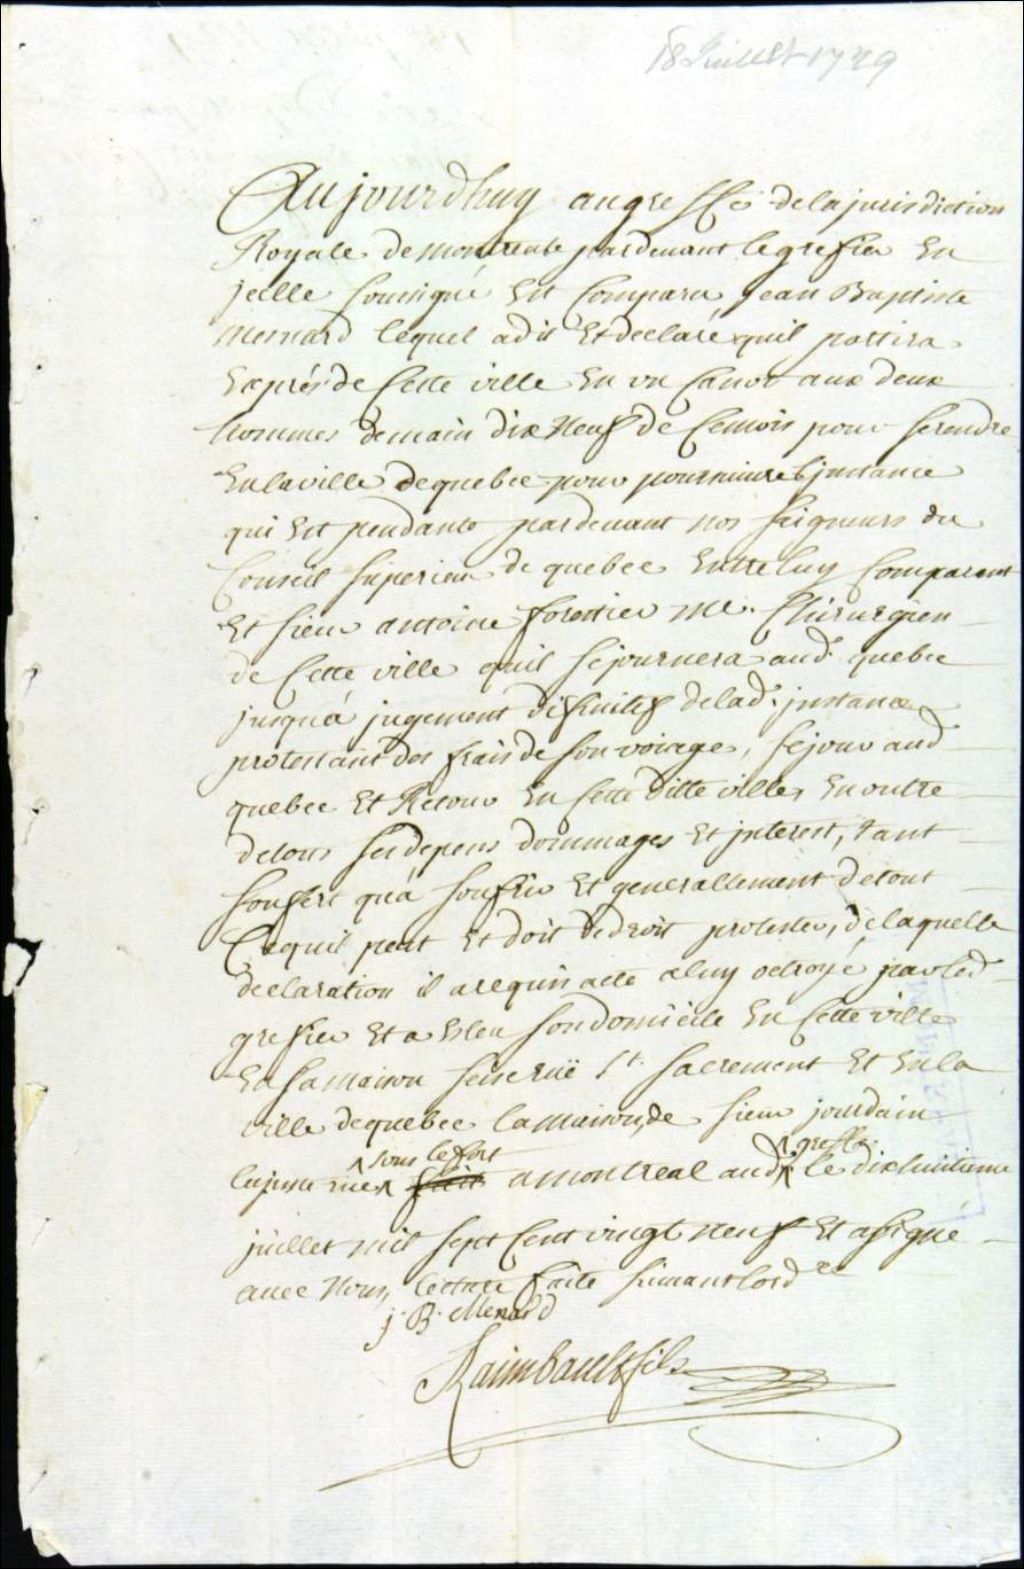 18 Juillet 1729
Aujourdhuy au greffe de la jurisdiction
Royale de montreal pardevant le grefier En
jcelle soussigné Est Comparu jean Baptiste
Menard lequel a dit Et declaré quil partira
Exprés de Cette ville En un Canot aux deux
hommes demain dix Neuf de Cemois pour se rendre
En la ville de quebec pour poursuivre Ljnstance
qui Est pendante pardevant nos seigneurs du
Conseil superieur de quebec Entre luy Comparant
Et sieur antoine forestier me. Chirurgien
de Cette ville quil sejournera aud. quebec
jusqu'a jugement difinitif de lad. jnstance
protestant des frais de son voiage, sejour aud
quebec Et Retour En Cette ditte ville, En outre
de tous ses depens dommages Et jnterest, tant
soufert qu'a soufrir Et generallement de tout
Ce quil peut Et doit de droit protester, de laquelle
declaration il a requis acte a luy octroyé par led
grefier Et a Esleu son domicile En Cette ville
En sa maison seise ruë St. sacrement Et En la
ville de quebec la maison de sieur jourdain
sous le fort greffe
rue fait a montreal aud. le dixhuitieme
juillet mil sept Cent vingt neuf Et a signé
avec Nous, lecture faite suivant lordce
j. B. Menard
Raimbault fils